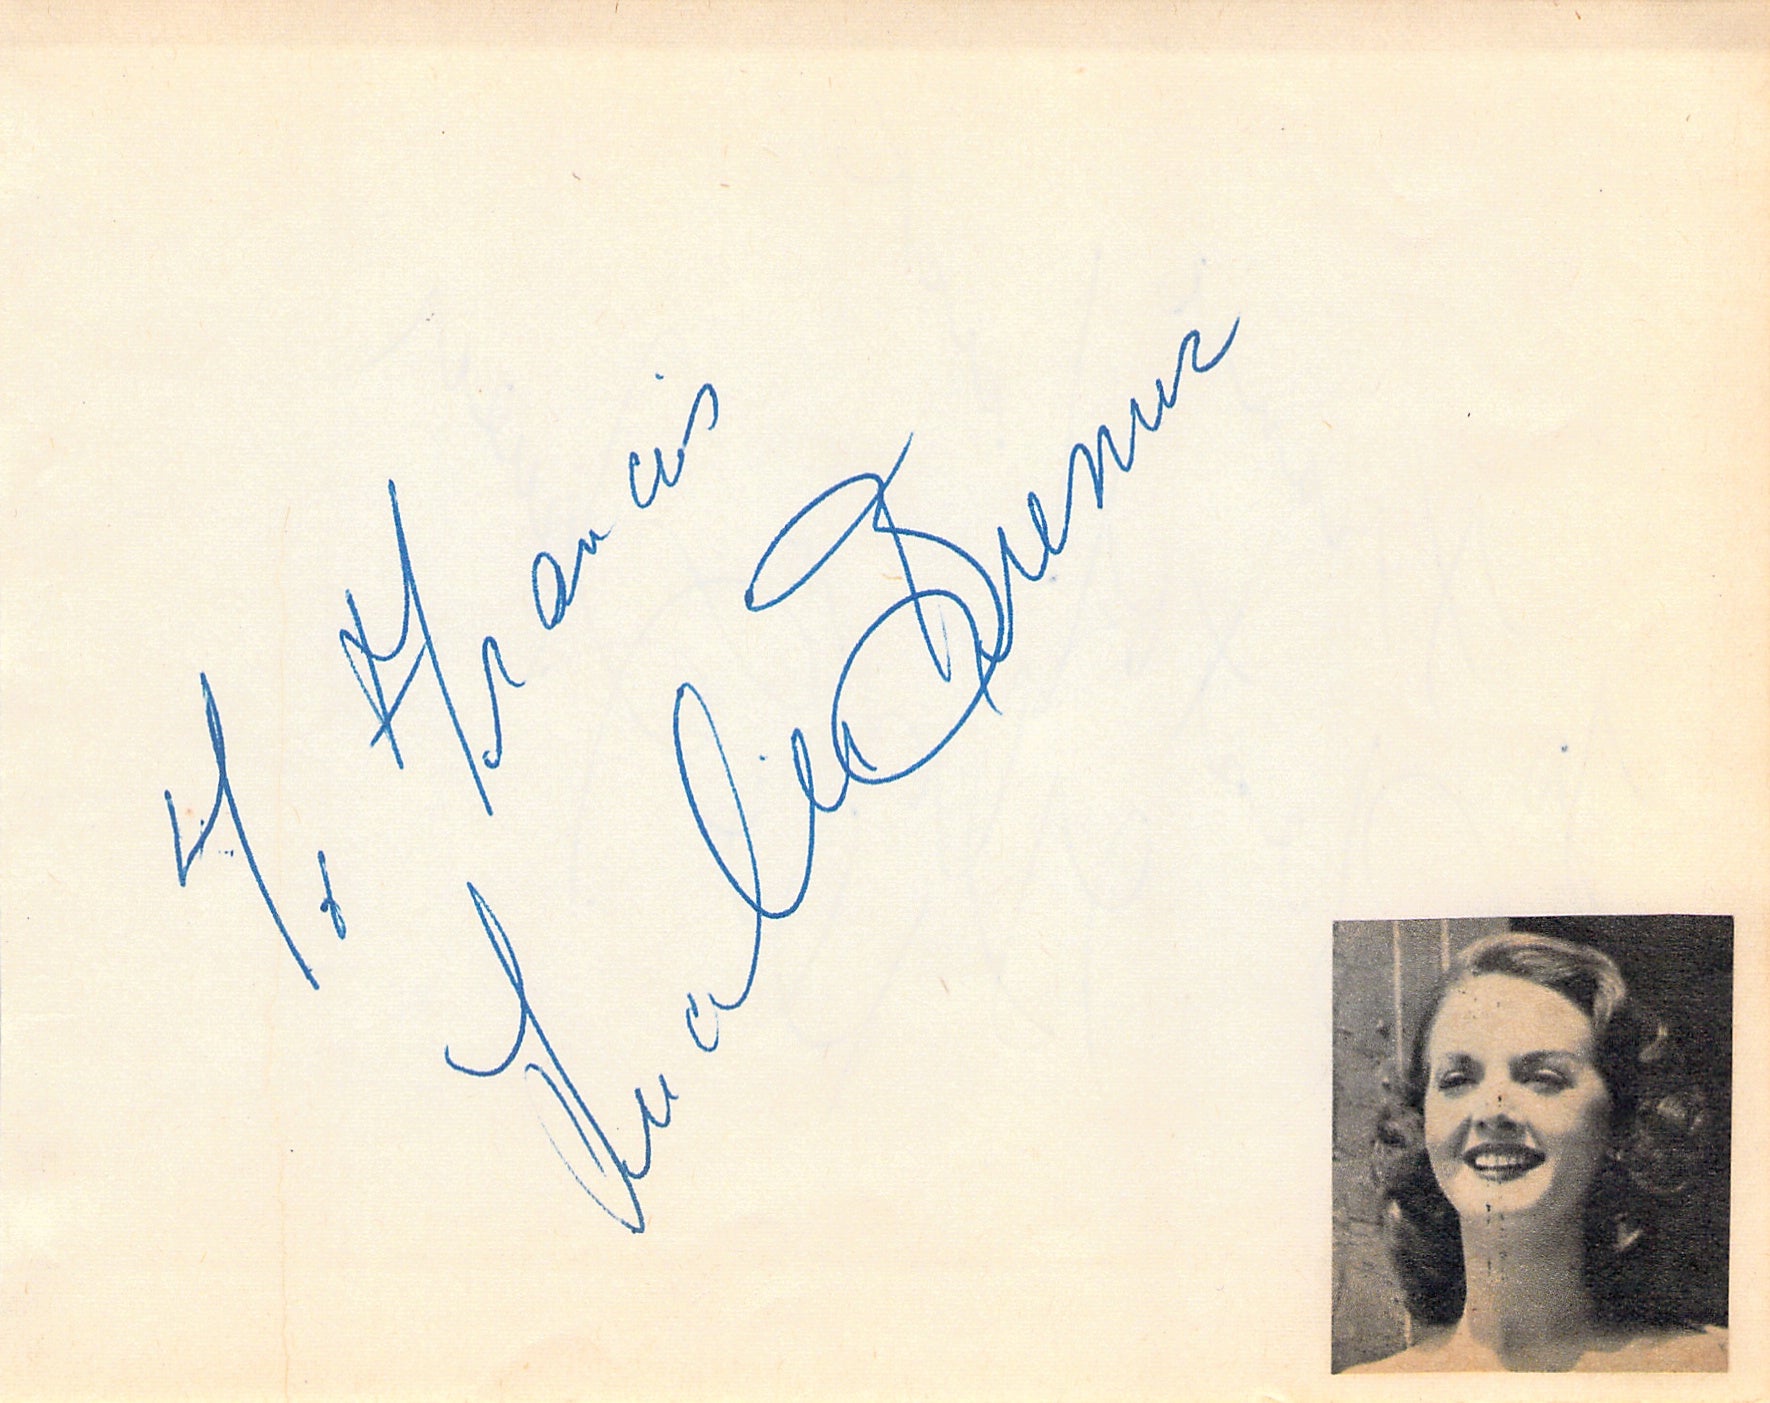 To Francis
Lucille Bremer